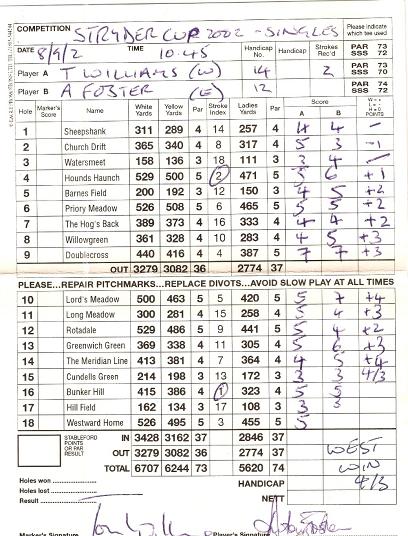 COMPETITION STRYDER CUP 2002 - SINGLES Please indicate which tee used
DATE 8/9/2 TIME 10:45 Handicap No. Handicap Strokes Rec'd PAR 73 SSS 72
Player A T WILLIAMS (W) 14 2 PAR 73 SSS 70
Player B A FOSTER (E) 12 PAR 74 SSS 72
Hole Marker's Score Name White Yards Yellow Yards Par Stroke Index Ladies Yards Par Score A B W = + L = - H = 0 POINTS
1 Sheepshank 311 289 4 14 257 4 4 4 -
2 Church Drift 365 340 4 8 317 4 5 3 -1
3 Watersmeet 158 136 3 18 111 3 3 4 -
4 Hounds Haunch 529 500 5 2 471 5 5 6 +1
5 Barnes Field 200 192 3 12 150 3 4 5 +2
6 Priory Meadow 526 508 5 6 465 5 5 5 +2
7 The Hog's Back 389 373 4 16 333 4 4 4 +2
8 Willowgreen 361 328 4 10 283 4 4 5 +3
9 Doublecross 440 416 4 4 387 5 7 7 +3
OUT 3279 3082 36 2774 37
PLEASE...REPAIR PITCHMARKS...REPLACE DIVOTS...AVOID SLOW PLAY AT ALL TIMES
10 Lord's Meadow 500 463 5 5 420 5 5 7 +4
11 Long Meadow 300 281 4 15 258 4 5 4 +3
12 Rotadale 529 486 5 9 441 5 5 4 +2
13 Greenwich Green 369 338 4 11 305 4 5 6 +3
14 The Meridian Line 413 381 4 7 364 4 4 5 +4
15 Cundells Green 214 198 3 13 172 3 3 3 4/3
16 Bunker Hill 415 386 4 1 323 4 5 5
17 Hill Field 162 134 3 17 108 3 3 3
18 Westward Home 526 495 5 3 455 5 5
STABLEFORD POINTS OR PAR RESULT IN 3428 3162 37 2846 37
OUT 3279 3082 36 2774 37 WEST
TOTAL 6707 6244 73 5620 74 WIN
Holes won HANDICAP 4/3
Holes lost NETT
Result
Marker's Signature Player's Signature